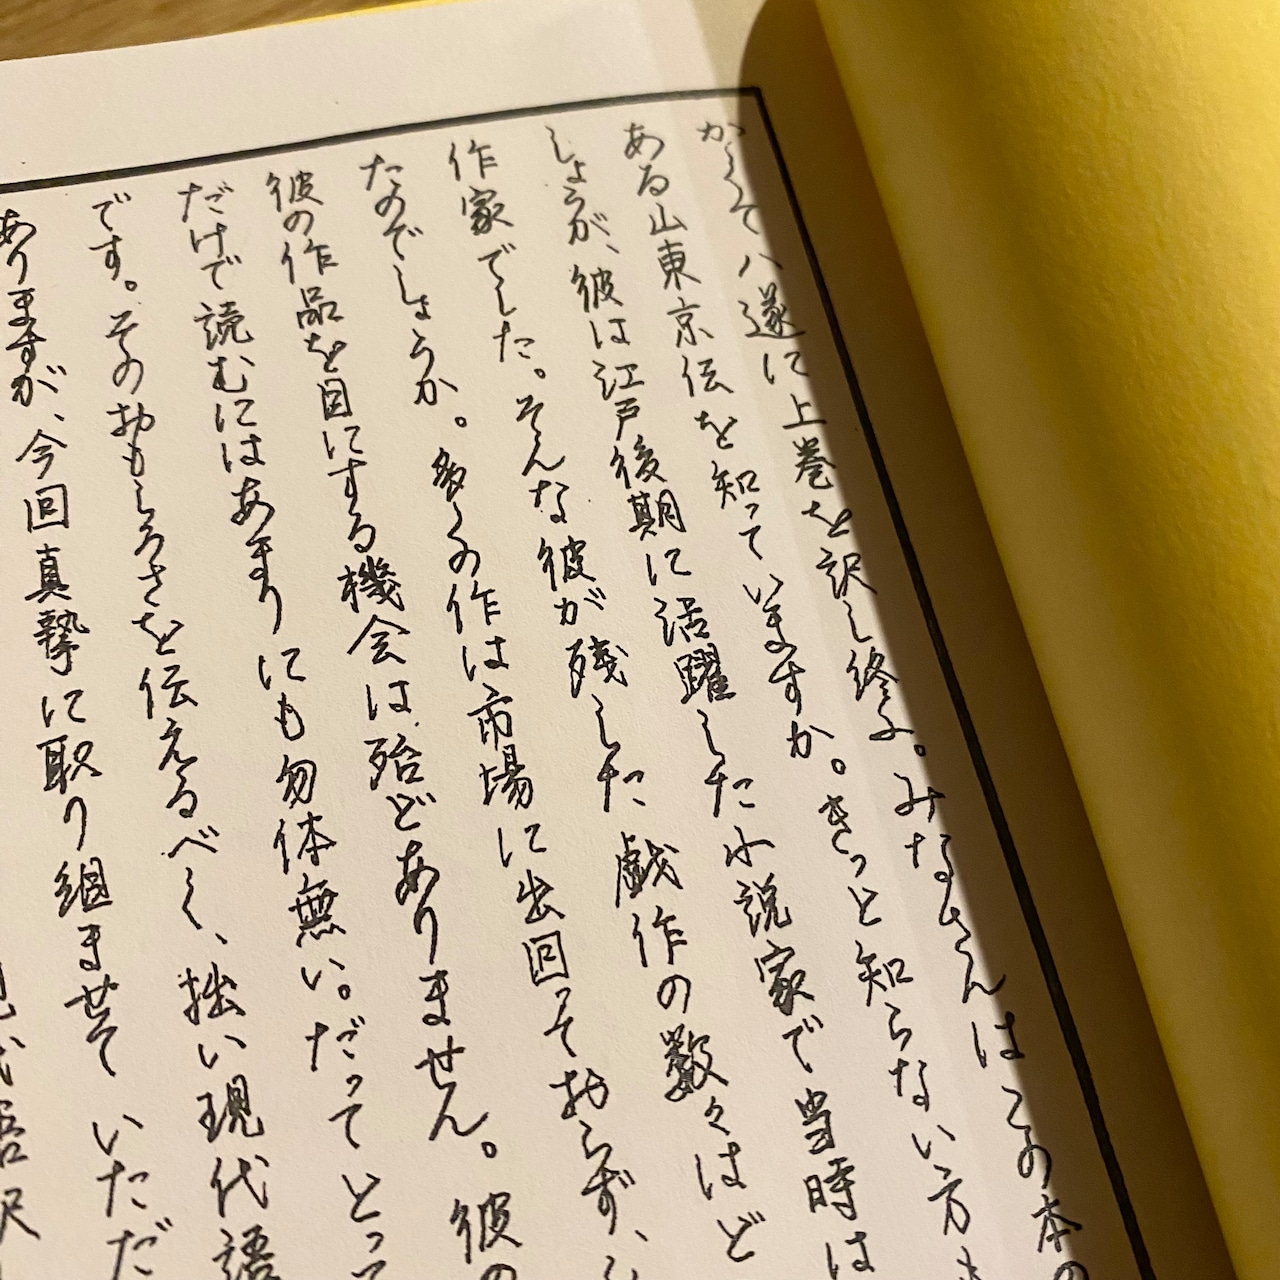 かくて八遂に上巻を訳し終ふ。みなさんはこの本の
ある山東京伝を知っていますか。きっと知らない方も
しょうが、彼は江戸後期に活躍した小説家で当時は
作家でした。そんな彼が残した戯作の数々はど
たのでしょうか。多くの作は市場に出回っておらず、
彼の作品を目にする機会は殆どありません。彼の
だけで読むにはあまりにも勿体無い。だってとっ
です。そのおもしろさを伝えるべく、拙い現代語
ありますが、今回真摯に取り組ませて いただ